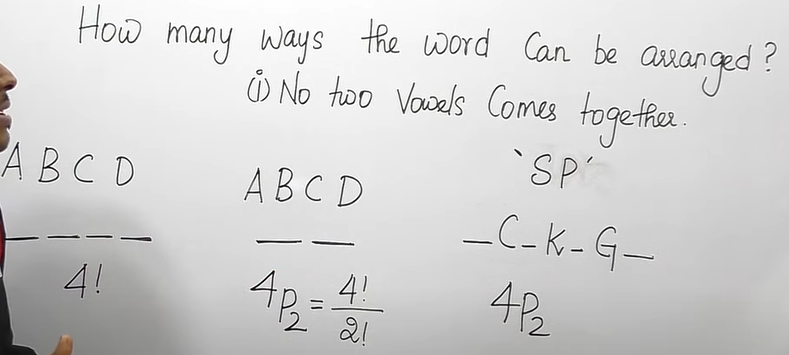 How many ways the word Can be arranged?
(i) No two Vowels Comes together.
A B C D
_ _ _ _
4!
A B C D
_ _
4P₂ = 4!/2!
'SP'
_C_K_G_
4P₂